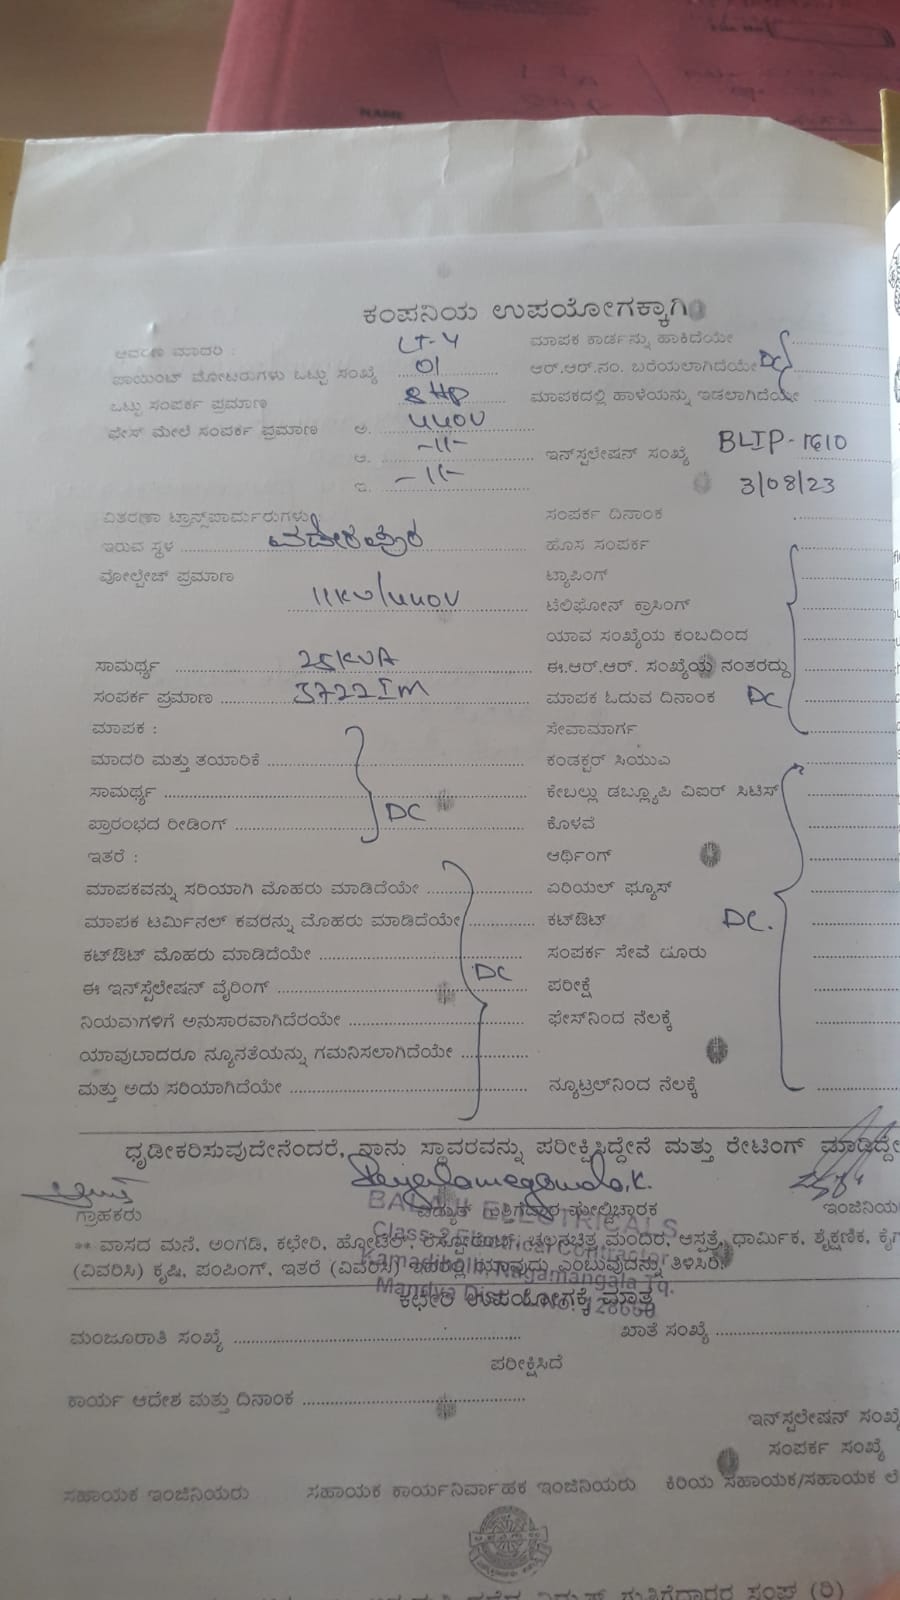 ಕಂಪನಿಯ ಉಪಯೋಗಕ್ಕಾಗಿ
ಆವರಣ ಮಾದರಿ : LT-4 ಮಾಪಕ ಕಾರ್ಡನ್ನು ಹಾಕಿದೆಯೇ
ಪಾಯಿಂಟ್ ಮೋಟರುಗಳು ಒಟ್ಟು ಸಂಖ್ಯೆ 01 ಆರ್.ಆರ್.ನಂ. ಬರೆಯಲಾಗಿದೆಯೇ DC
ಒಟ್ಟು ಸಂಪರ್ಕ ಪ್ರಮಾಣ 8HP ಮಾಪಕದಲ್ಲಿ ಹಾಳೆಯನ್ನು ಇಡಲಾಗಿದೆಯೇ
ಫೇಸ್ ಮೇಲೆ ಸಂಪರ್ಕ ಪ್ರಮಾಣ ಅ. 440V
ಆ. -11- ಇನ್‌ಸ್ಟಲೇಷನ್ ಸಂಖ್ಯೆ BLIP-1610
ಇ. -11- 3/08/23
ವಿತರಣಾ ಟ್ರಾನ್ಸ್‌ಪಾರ್ಮರುಗಳು ಸಂಪರ್ಕ ದಿನಾಂಕ
ಇರುವ ಸ್ಥಳ ಹೊಸ ಸಂಪರ್ಕ
ವೋಲ್ಟೇಜ್ ಪ್ರಮಾಣ ಟ್ಯಾಪಿಂಗ್
11KV/440V ಟೆಲಿಫೋನ್ ಕ್ರಾಸಿಂಗ್
ಯಾವ ಸಂಖ್ಯೆಯ ಕಂಬದಿಂದ
ಸಾಮರ್ಥ್ಯ 25KVA ಈ.ಆರ್.ಆರ್. ಸಂಖ್ಯೆಯ ನಂತರದ್ದು
ಸಂಪರ್ಕ ಪ್ರಮಾಣ 3722 IM ಮಾಪಕ ಓದುವ ದಿನಾಂಕ DC
ಮಾಪಕ : ಸೇವಾಮಾರ್ಗ
ಮಾದರಿ ಮತ್ತು ತಯಾರಿಕೆ ಕಂಡಕ್ಟರ್ ಸಿಯುಎ
ಸಾಮರ್ಥ್ಯ DC ಕೇಬಲ್ಲು ಡಬ್ಲ್ಯೂಪಿ ವಿಐರ್ ಸಿಟಿಸ್
ಪ್ರಾರಂಭದ ರೀಡಿಂಗ್ ಕೊಳವೆ
ಇತರೆ : ಆರ್ಥಿಂಗ್
ಮಾಪಕವನ್ನು ಸರಿಯಾಗಿ ಮೊಹರು ಮಾಡಿದೆಯೇ ಏರಿಯಲ್ ಫ್ಯೂಸ್
ಮಾಪಕ ಟರ್ಮಿನಲ್ ಕವರನ್ನು ಮೊಹರು ಮಾಡಿದೆಯೇ ಕಟ್‌ಔಟ್ DC.
ಕಟ್‌ಔಟ್ ಮೊಹರು ಮಾಡಿದೆಯೇ DC ಸಂಪರ್ಕ ಸೇವೆ ಡೂರು
ಈ ಇನ್‌ಸ್ಟೆಲೇಷನ್ ವೈರಿಂಗ್ ಪರೀಕ್ಷೆ
ನಿಯಮಗಳಿಗೆ ಅನುಸಾರವಾಗಿದೆರಯೇ ಫೇಸ್‌ನಿಂದ ನೆಲಕ್ಕೆ
ಯಾವುದಾದರೂ ನ್ಯೂನತೆಯನ್ನು ಗಮನಿಸಲಾಗಿದೆಯೇ
ಮತ್ತು ಅದು ಸರಿಯಾಗಿದೆಯೇ ನ್ಯೂಟ್ರಲ್‌ನಿಂದ ನೆಲಕ್ಕೆ
ಧೃಡೀಕರಿಸುವುದೇನೆಂದರೆ, ನಾನು ಸ್ಥಾವರವನ್ನು ಪರೀಕ್ಷಿಸಿದ್ದೇನೆ ಮತ್ತು ರೇಟಿಂಗ್ ಮಾಡಿದ್ದೇ
ಗ್ರಾಹಕರು ವಿದ್ಯುತ್ ಗುತ್ತಿಗೆದಾರ ಮೇಲ್ವಿಚಾರಕ ಇಂಜಿನಿಯ
BALAJI ELECTRICALS
Class-2 Electrical Contractor
Nagamangala Tq.
Mandya Dist.
** ವಾಸದ ಮನೆ, ಅಂಗಡಿ, ಕಛೇರಿ, ಹೋಟೆಲ್, ರೆಸ್ಟೋರೆಂಟ್, ಚಲನಚಿತ್ರ ಮಂದಿರ, ಆಸ್ಪತ್ರೆ, ಧಾರ್ಮಿಕ, ಶೈಕ್ಷಣಿಕ, ಕೈಗ
(ವಿವರಿಸಿ) ಕೃಷಿ, ಪಂಪಿಂಗ್, ಇತರೆ (ವಿವರಿಸಿ) ಯಾವುದು ಎಂಬುವುದನ್ನು ತಿಳಿಸಿರಿ.
ಕಛೇರಿ ಉಪಯೋಗಕ್ಕೆ ಮಾತ್ರ
ಮಂಜೂರಾತಿ ಸಂಖ್ಯೆ ಖಾತೆ ಸಂಖ್ಯೆ
ಪರೀಕ್ಷಿಸಿದೆ
ಕಾರ್ಯ ಆದೇಶ ಮತ್ತು ದಿನಾಂಕ
ಇನ್‌ಸ್ಟಲೇಷನ್ ಸಂಖ್ಯೆ
ಸಂಪರ್ಕ ಸಂಖ್ಯೆ
ಸಹಾಯಕ ಇಂಜಿನಿಯರು ಸಹಾಯಕ ಕಾರ್ಯನಿರ್ವಾಹಕ ಇಂಜಿನಿಯರು ಕಿರಿಯ ಸಹಾಯಕ/ಸಹಾಯಕ ಲೆ